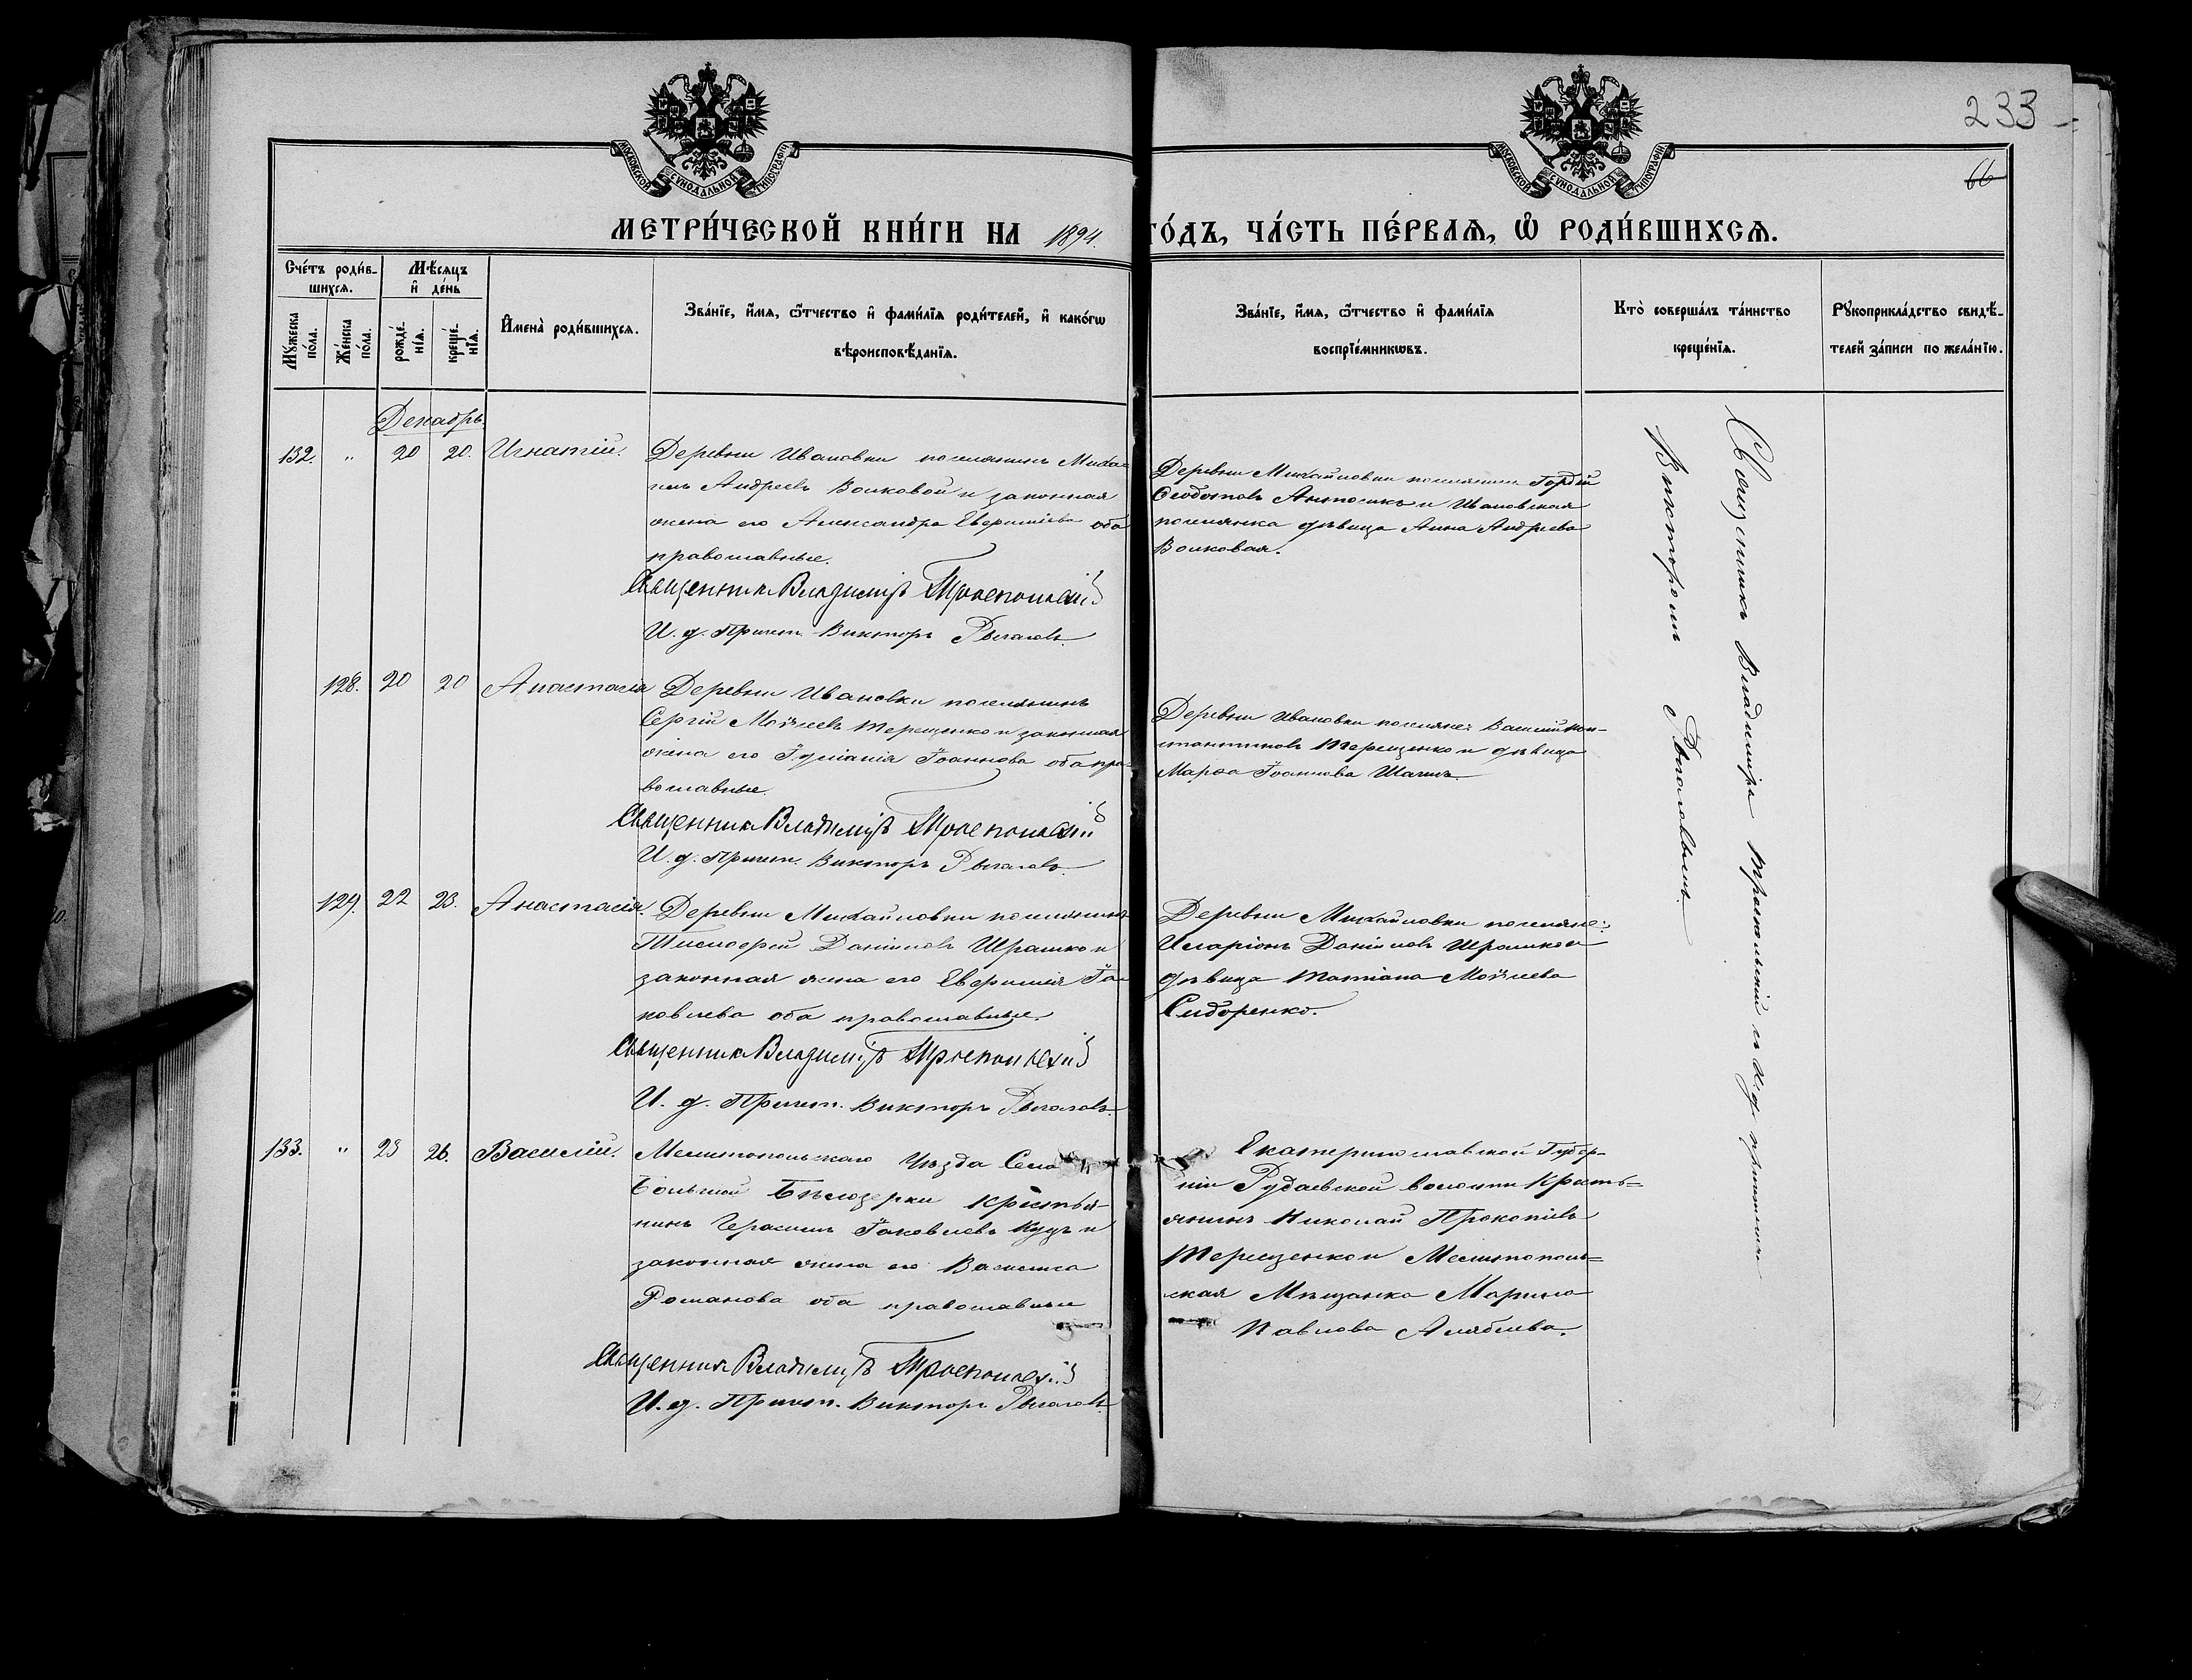 233
66
МОСКОВСКОЙ СѴНОДАЛЬНОЙ ТИПОГРАФІИ
МОСКОВСКОЙ СѴНОДАЛЬНОЙ ТИПОГРАФІИ
МЕТРИ́ЧЕСКОЙ КНИ́ГИ НА 1894. ГО́ДЪ, ЧА́СТЬ ПЕ́РВАѦ, Ѽ РОДИ́ВШИХСѦ.
Сче́тъ роди́в-
шихсѧ.
Мꙋ́жеска по́ла.
Же́нска по́ла.
Мѣ́сѧцъ и҆ де́нь
рожде́-нїѧ.
креще́-нїѧ.
И҆мена̀ роди́вшихсѧ.
Зва́нїе, и҆́мѧ, ѻ҆́тчество и҆ фами́лїѧ роди́телей, и҆ како́гѡ
вѣроисповѣ́данїѧ.
Зва́нїе, и҆́мѧ, ѻ҆́тчество и҆ фами́лїѧ
воспрїе́мникѡвъ.
Кто̀ соверша́лъ та́инство
креще́нїѧ.
Рꙋкоприкла́дство свидѣ́-
телей за́писи по жела́нїю.
Декабрь.
132. " 20 20. Игнатій.
Деревни Ивановки поселянинъ Миха-
илъ Андреевъ Волковой и законная
жена его Александра Евфиміева оба
православные.
Священникъ Владиміръ
И. д. Причет. Викторъ Рогаловъ.
Деревни Михайловки поселянинъ Гордій
Феодотовъ Антосикъ и Ивановская
поселянка дѣвица Анна Андреева
Волковая.
128. 20 20 Анастасія
Деревни Ивановки поселянинъ
Сергій Моѵсеевъ Терещенко и законная
жена его Іуліанія Іоаннова оба пра-
вославные.
Священникъ Владиміръ
И. д. Причет. Викторъ Рогаловъ.
Деревни Ивановки поселяне: Василій Кон-
стантиновъ Терещенко и дѣвица
Марѳа Іоаннова
129. 22 23. Анастасія.
Деревни Михайловки поселянинъ
Тимофей Даніиловъ Ирашко и
законная жена его Евфимія Іа-
ковлева оба православные.
Священникъ Владиміръ
И. д. Причет. Викторъ Рогаловъ.
Деревни Михайловки поселяне:
Иларіонъ Даніиловъ Ирашко и
дѣвица Татіана Моѵсеева
Сидоренко.
133. " 23 26. Василій.
Мелитопольскаго Уѣзда Села
Большой Бѣлозерки крестья-
нинъ Герасимъ Іаковлевъ Куцъ и
законная жена его Василиса
Романова оба православные
Священникъ Владиміръ
И. д. Причет. Викторъ Рогаловъ.
Екатеринославской Губер-
ніи Рудаевской волости Кресть-
янинъ Николай Прокопіевъ
Терещенко и Мелитополь-
ская Мѣщанка Марина
Павлова Алябьева.
Священникъ Владиміръ и и. д. причетника
Викторомъ Рогаловымъ.